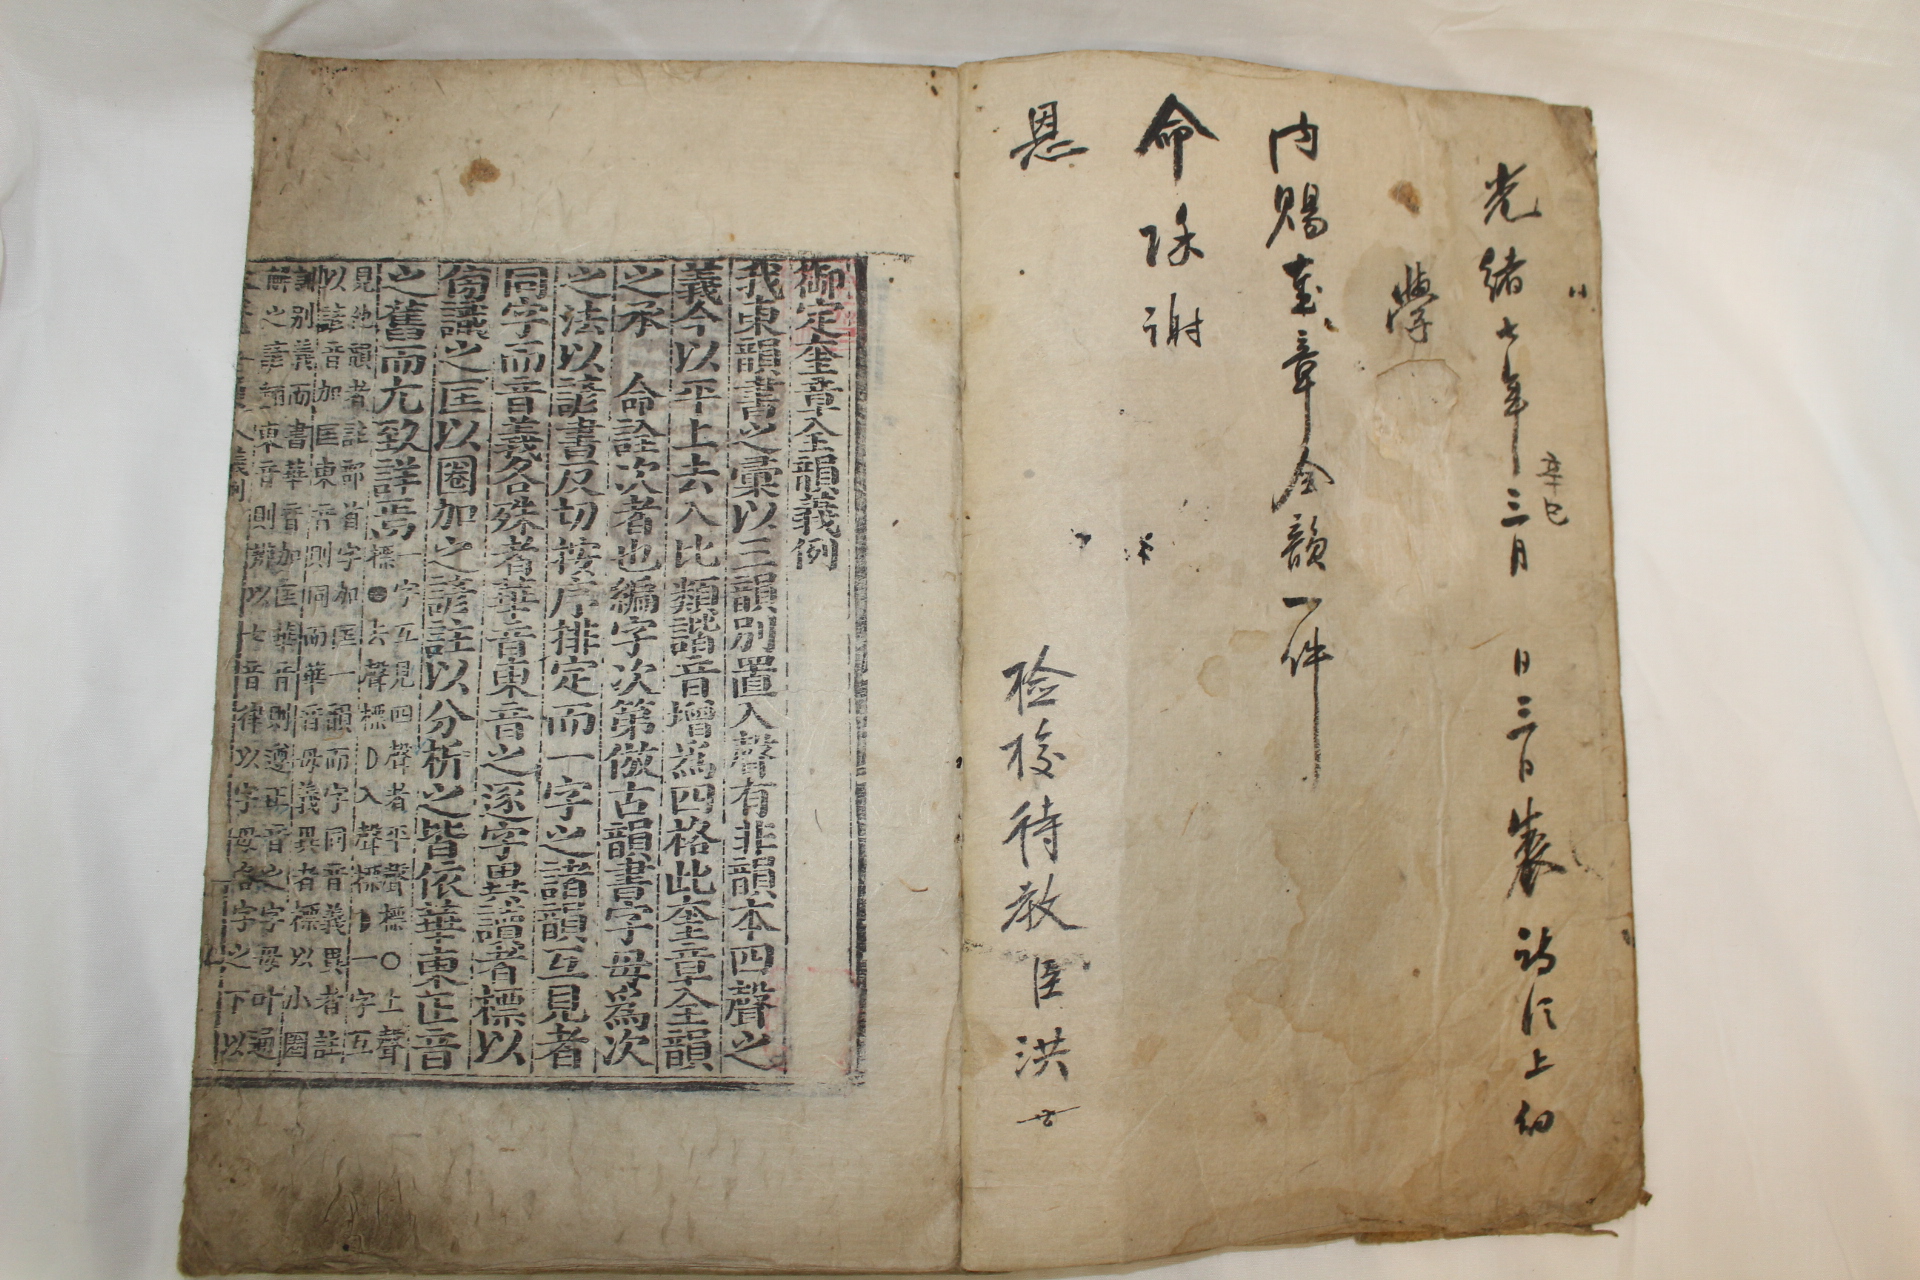 光緒七年三月 日三日製
辛巳
學
內賜奎章全韻一件
命除謝
恩
檢校待教臣洪
御定奎章全韻義例
我東韻書之彙以三韻別置入聲有非韻本四聲之
義今以平上去入比類諧音增爲四格此奎章全韻
之承 命詮次者也編字次第倣古韻書字母爲次
之法以諺書反切按序排定而一字之諸韻互見者
同字而音義各殊者華音東音之逐字異讀者標以
傍識之匡以圈加之諺註以分析之皆依華東正音
之舊而尤致詳焉
一字互見四聲者平聲標○上聲
標●去聲標D入聲標 一字互
見他韻者註部首字加匡一韻而字同音義異者註
以諺音加匡東音則同而華音母義異者標以小圈
訓別義而書華音加匡華音則遵正音之字母叶通
解之諺 東音則 以七音律以字母各字之下以